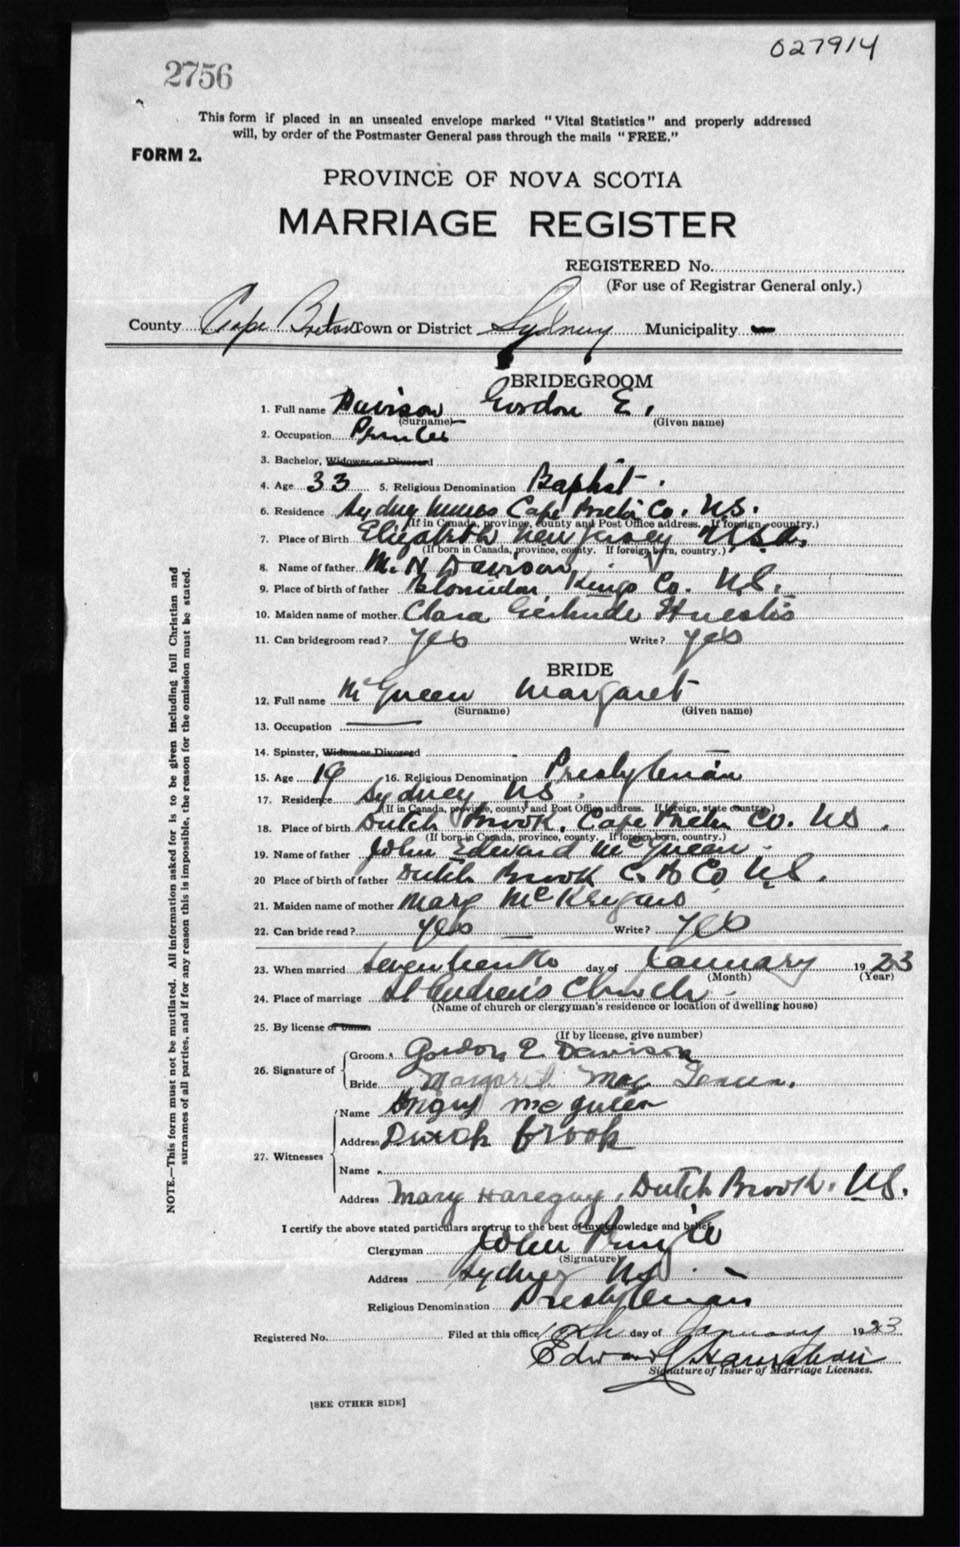 027914
2756
This form if placed in an unsealed envelope marked "Vital Statistics" and properly addressed
will, by order of the Postmaster General pass through the mails "FREE."
FORM 2.
PROVINCE OF NOVA SCOTIA
MARRIAGE REGISTER
REGISTERED No.
(For use of Registrar General only.)
County Cape Breton Town or District Sydney Municipality —
BRIDEGROOM
1. Full name Davison Gordon E.
(Surname) (Given name)
2. Occupation
3. Bachelor, Widower or Divorced
4. Age 33 5. Religious Denomination Baptist.
6. Residence Sydney Mines Cape Breton Co. N.S.
(If in Canada, province, county and Post Office address. If foreign, country.)
7. Place of Birth Elizabeth New Jersey U.S.A.
(If born in Canada, province, county. If foreign born, country.)
8. Name of father M. H Davison
9. Place of birth of father Blomidon, Kings Co. N.S.
10. Maiden name of mother Clara Gertrude Huestis
11. Can bridegroom read? yes Write? yes
BRIDE
12. Full name McQueen Margaret
(Surname) (Given name)
13. Occupation —
14. Spinster, Widow or Divorced
15. Age 19 16. Religious Denomination Presbyterian
17. Residence Sydney N.S.
(If in Canada, province, county and Post Office address. If foreign, state country.)
18. Place of birth Dutch Brook, Cape Breton Co. N.S.
(If born in Canada, province, county. If foreign born, country.)
19. Name of father John Edward McQueen.
20 Place of birth of father Dutch Brook C. B Co N.S.
21. Maiden name of mother Mary
22. Can bride read? yes — Write? yes
23. When married Seventeenth day of January 1923
(Month) (Year)
24. Place of marriage St Andrew's Church.
(Name of church or clergyman's residence or location of dwelling house)
25. By license or banns
(If by license, give number)
26. Signature of Groom Gordon E Davison
Bride Margaret Mac Queen.
27. Witnesses Name Angus McQueen
Address Dutch Brook
Name
Address Mary , Dutch Brook. N.S.
I certify the above stated particulars are true to the best of my knowledge and belief.
Clergyman John Pringle
(Signature)
Address Sydney N.S.
Religious Denomination Presbyterian
Registered No. Filed at this office day of January 1923
Edward
Signature of Issuer of Marriage Licenses.
[SEE OTHER SIDE]
NOTE.—This form must not be mutilated. All information asked for is to be given including full Christian and
surnames of all parties, and if for any reason this is impossible, the reason for the omission must be stated.